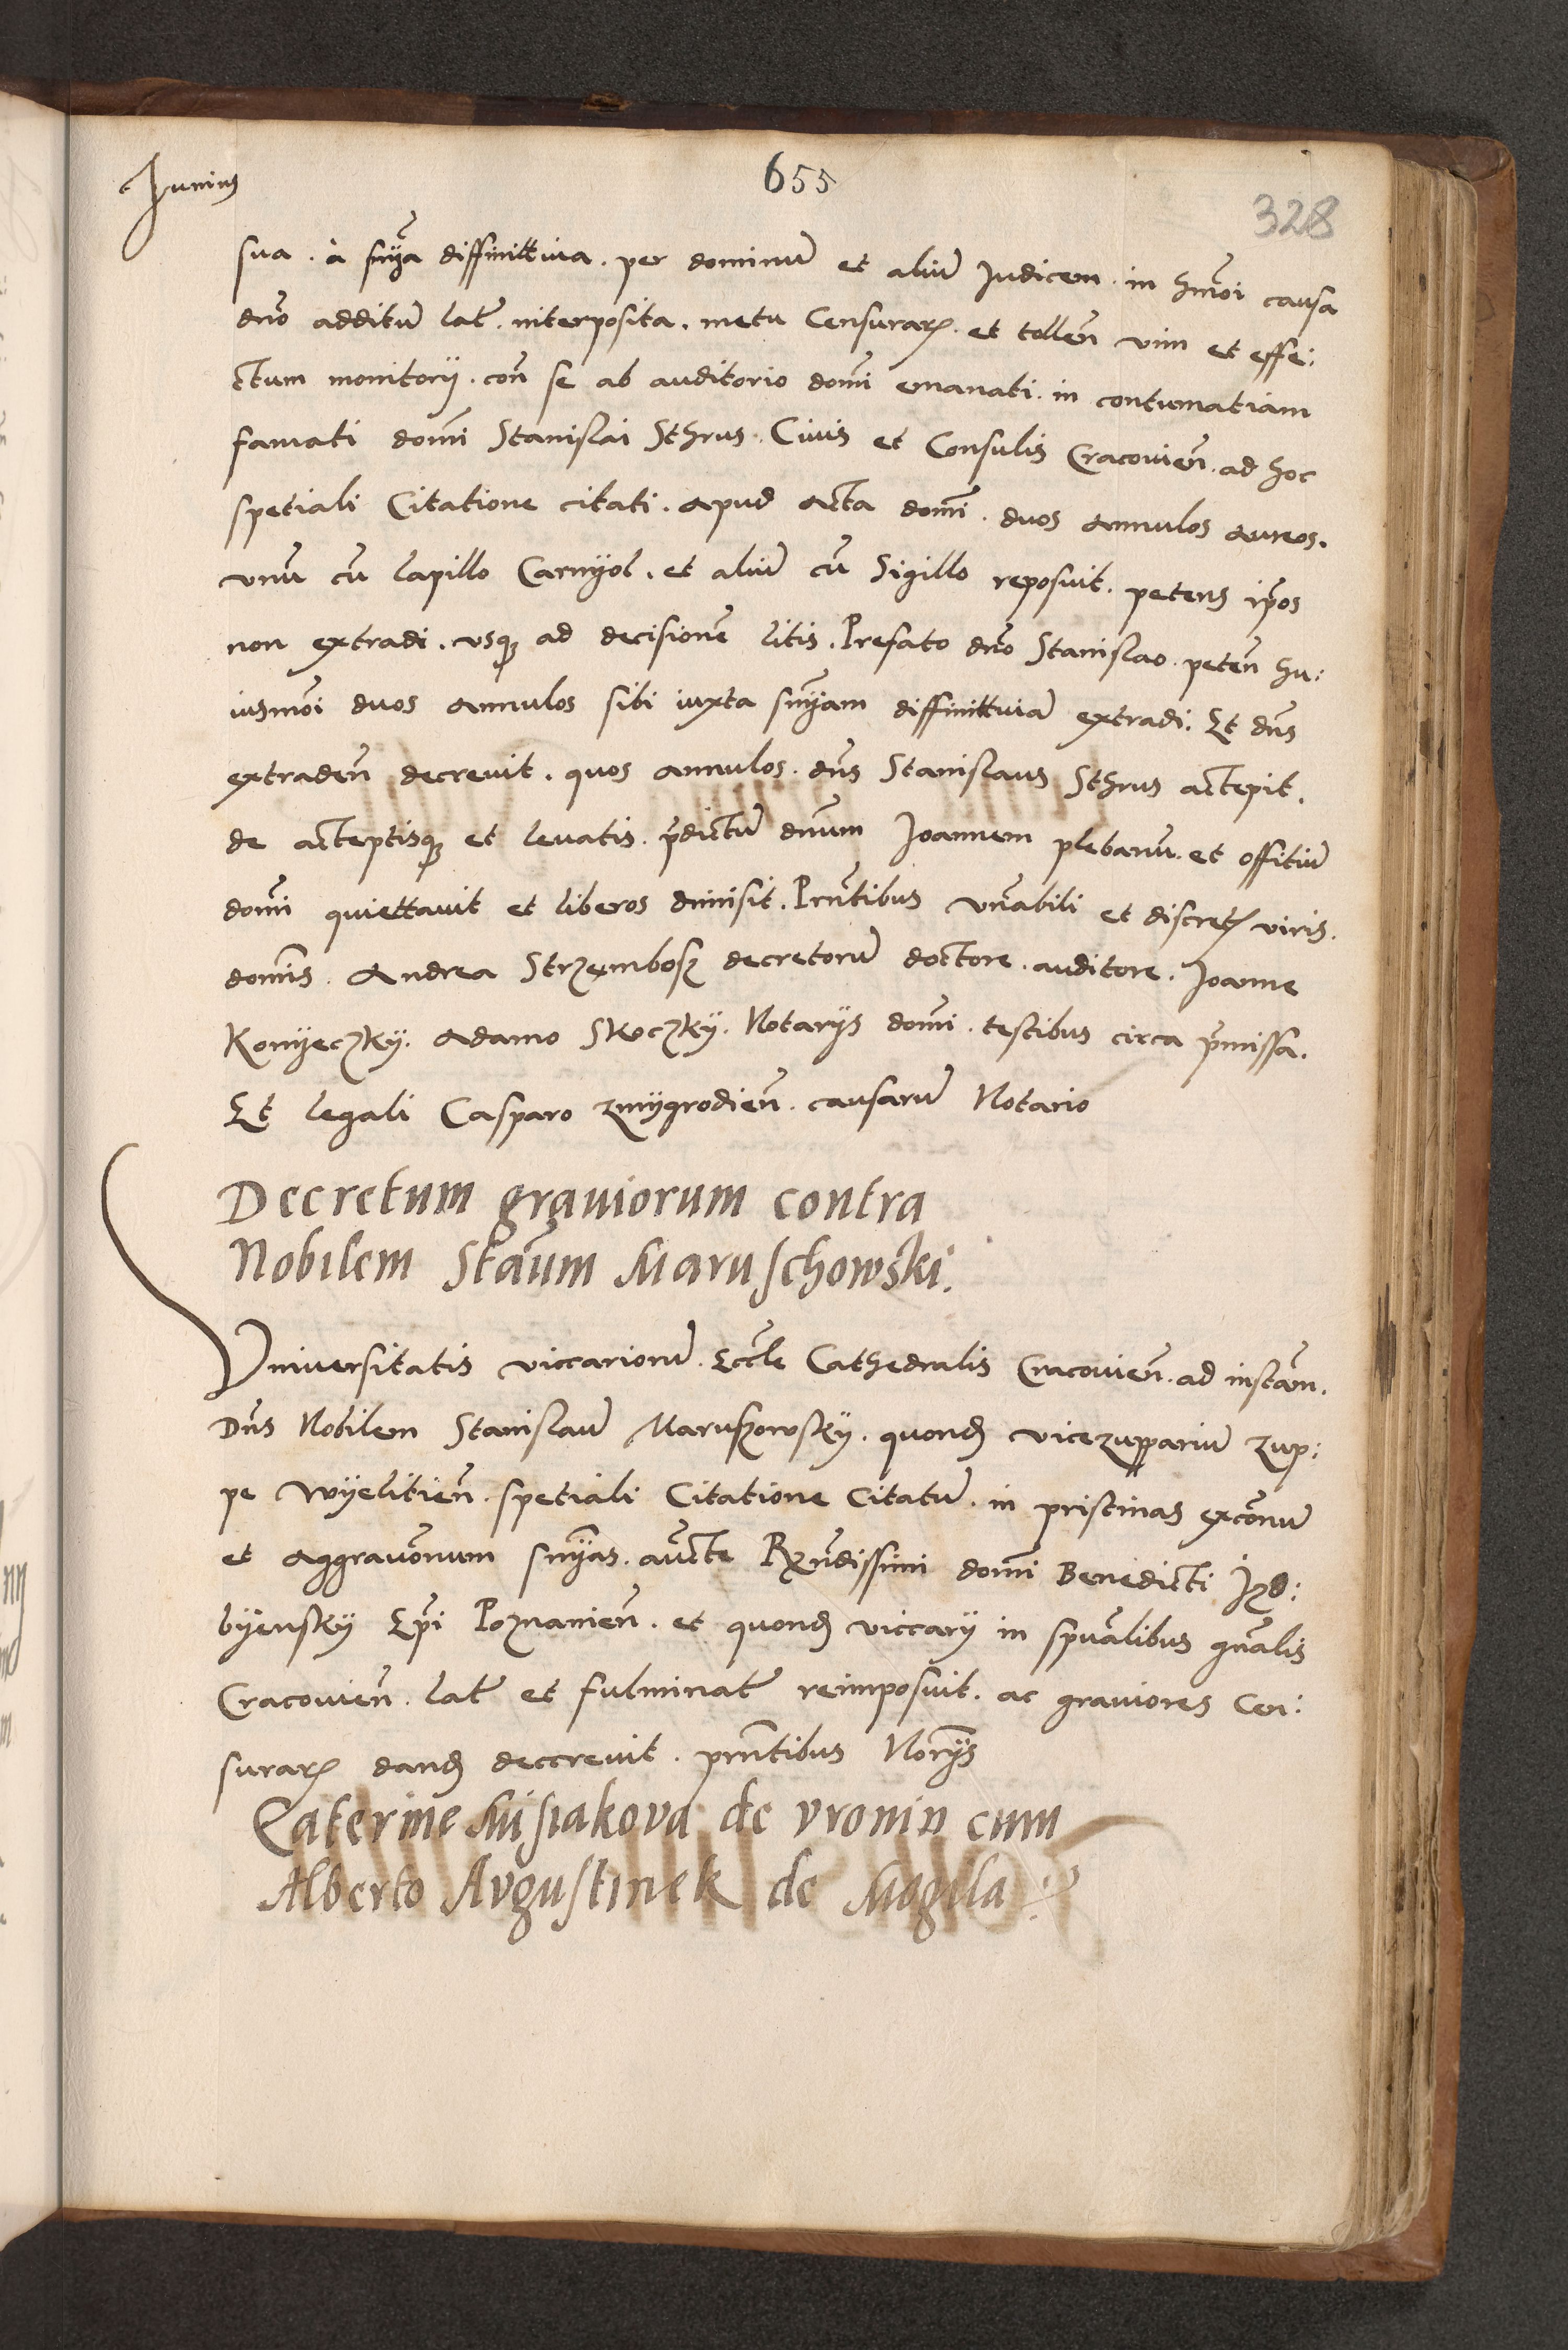 Junius
655
328
sua . à snỹa diffinittiua . per dominũ et aliũ Judicem . in hmõi causa
dno additũ lat̃ . interposita . metu Censurarꝝ . et tolleñ vim et effe:
ctum monitorÿ . coñ se ab auditorio domĩ emanati . in contumatiam
famati domĩ Stanislai Sthrus . Ciuis et Consulis Cracouieñ . ad hoc
spetiali Citatione citati . apud acta domĩ . duos annulos aureos .
vnũ cũ lapillo Carnÿol . et aliũ cũ Sigillo reposuit . petens ip̃os
non extradi . vsqꝫ ad decisionẽ litis . Prefato dño Stanislao . peteñ hu:
iusmõi duos annulos sibi iuxta snỹam diffinittiuã extradi . Et dñs
extradeñ decreuit . quos annulos . dñs Stanislaus Sthrus actepit .
de acteptisqꝫ et leuatis . p̃dictũ dnum Joannem plebanũ . et offitiũ
domĩ quiettauit et liberos dimisit . Pñtibus vñabili et discretꝭ viris .
domis . Andrea Strzembosz decretorũ doctore . auditore . Joanne
Konyeczkÿ . Adamo Skoczkÿ . Notarÿs domĩ . testibus circa p̃missa .
Et legali Casparo zmÿgrodieñ . causarũ Notario
Decretum grauiorum contra
Nobilem Staũm Maruschowski .
Vniuersitatis viccariorũ . Eccl̃e Cathedralis Cracouieñ . ad instañ .
Dñs Nobilem Stanislaũ Maruszowskÿ . quondꝫ vicezupparium zup:
pe Wÿelitieñ . spetiali Citatione Citatũ . in pristinas excõnum
et aggrauõnum snỹas . auctẽ Rxñdissimi domĩ Benedicti Jzd:
bÿenskÿ Ep̃i Poznanieñ . et quondꝫ viccarÿ in spũalibus gñalis
Cracouieñ . lat̃ et fulminat̃ reimposuit . ac grauiores Cen:
surarꝝ dandꝫ decreuit . pñtibus Norÿs
Caterine Misiakova de vronin cum
Alberto Avgustinek de Mogila